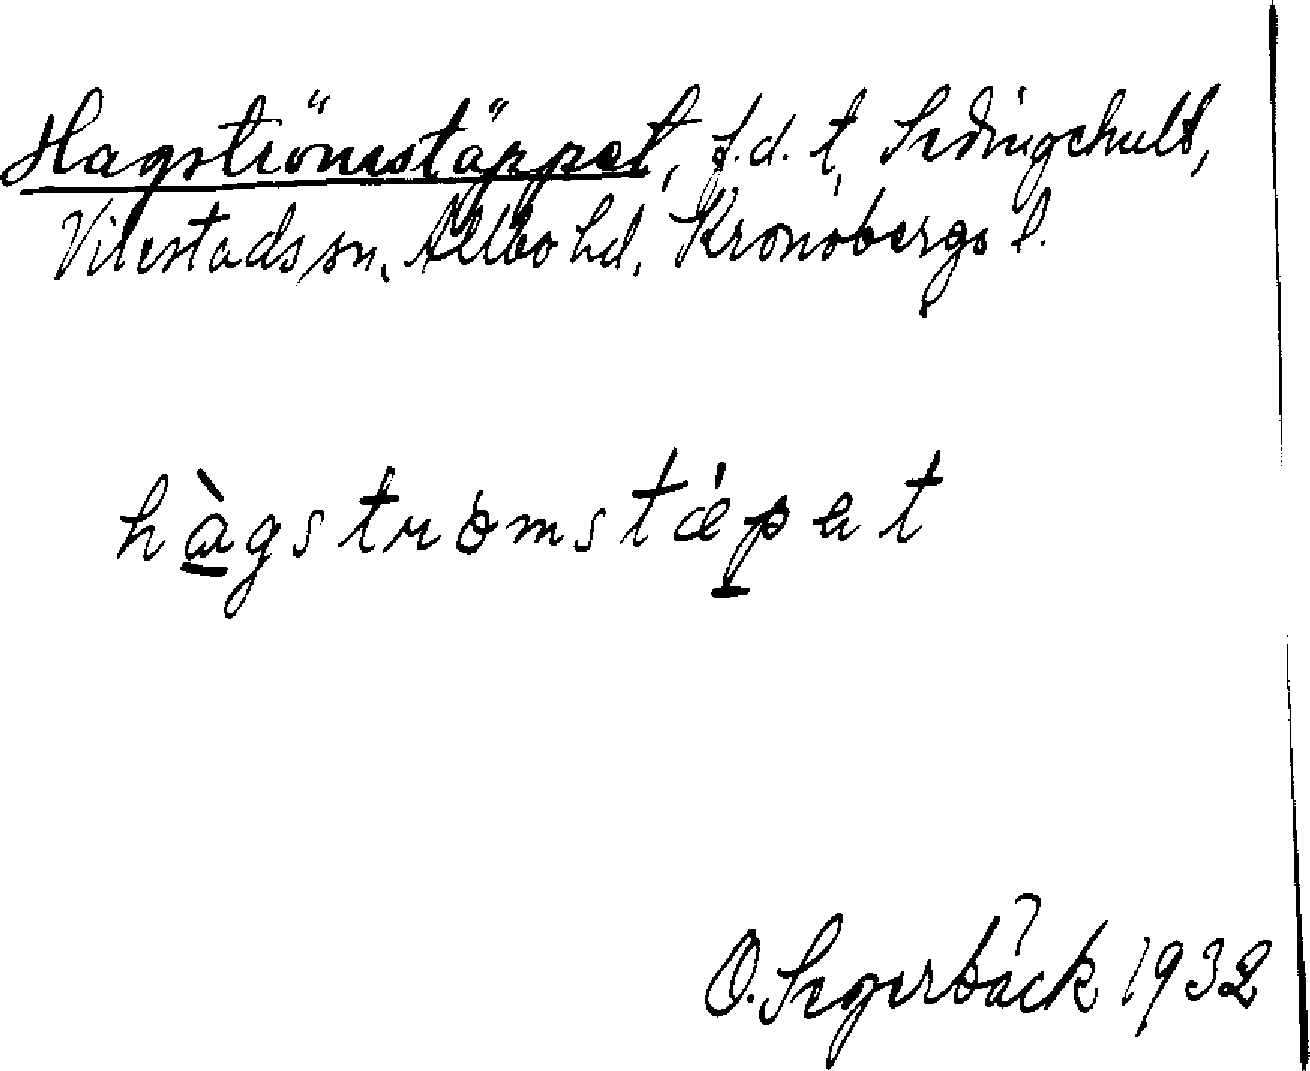 Hagströmstäppet, f.d. t, Sedingehult,
Virestads sn, Allbo hd, Kronobergs l.
hàgstrømstæpet
O. Segerbäck 1932